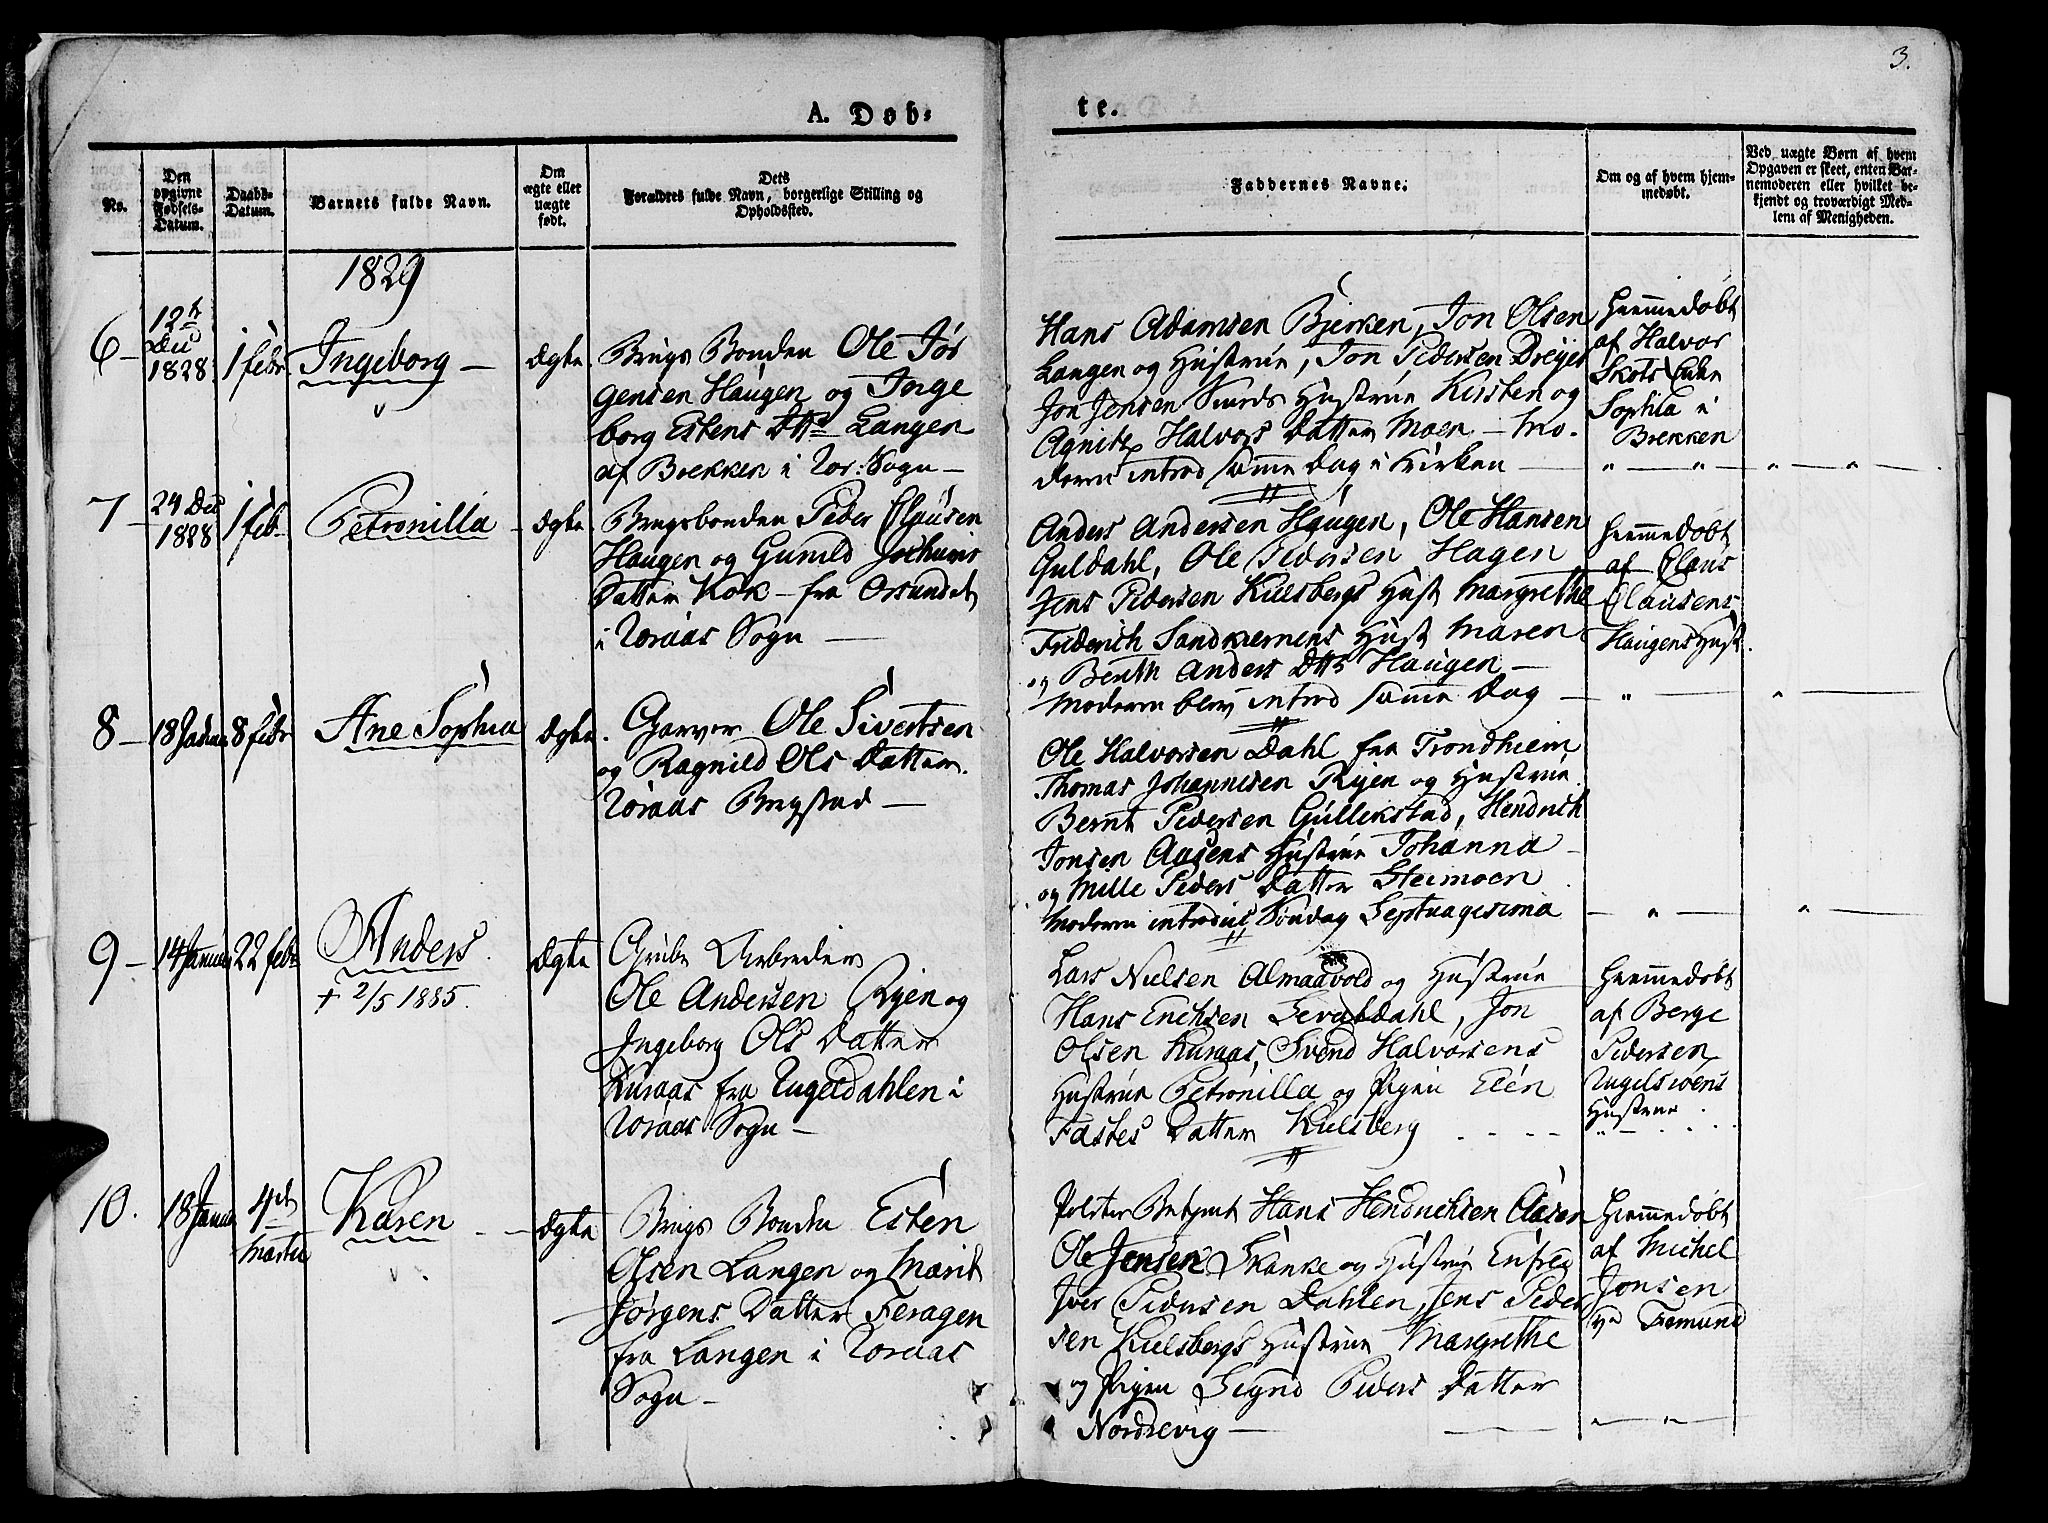 3.
A. Døb-
te.
No.
Den opgivne Fødsels-Datum.
Daabs-Datum.
Barnets fulde Navn.
Om ægte eller uægte født.
Dets
Forældres fulde Navn, borgerlige Stilling og
Opholdssted.
Faddernes Navne.
Om og af hvem hjem-
medøbt.
Ved uægte Børn af hvem
Opgaven er skeet, enten Bar-
nemoderen eller hvilket be-
kjendt og troværdigt Med-
lem af Menigheden.
1829
6 –
12te
Dec
1828
1 febr
Ingeborg –
Ægte
Brugs Bonden Ole Jør
gensen Haugen og Inge
borg Estens Dttr Langen
af Brekken i Sogn –
Hans Adamsen Bjerken, Jon Olsen
Langen og Hustrue, Jon Pedersen Dreyer
Jon Jensen Hustrue Kirsten og
Agnite Halvors Datter Moen – Mo-
deren introd samme Dag i Kirken –
Hiemmedøbt
af Halvor
Skots Enke
Sophia i
Brekken
7 –
24 Dec
1828
1 feb
Petronilla –
Ægte
Brugsbonden Peder Clausen
Haugen og Gunild Jochums
Datter Kok – fra Orsundet
i Røraas Sogn –
Anders Andersen Haugen, Ole Hansen
Guldahl, Ole Pedersen Hagen
Jens Pedersen Kulsbergs Hust Margrethe
Friderich Sandkiernens Hust Maren
og Berith Anders Dttr Haugen –
Moderen blev introd samme Dag –
Hiemmedøbt
af Claus
Clausens
Haugens Hust.
8 –
18 Januar
8 febr
Ane Sophia
Ægte.
Garver Ole Sivertsen
og Ragnild Ols Datter.
Røraas Bergstad –
Ole Halvorsen Dahl fra Trondhiem
Thomas Johannesen Ryen og Hustrue
Bernt Pedersen Gullikstad, Hendrich
Jonsen Aasens Hustrue Johanna –
og Mille Peders Datter Steimoen
Moderen introduc Søndag Septuagesima
9 –
14 Januar
22 febr
Anders
+ 2/5 1885.
Ægte
Grube Arbeider
Ole Andersen Ryen og
Ingeborg Ols Datter
Kuraas fra Rugeldahlen i
Røraas Sogn –
Lars Nielsen Almaavold og Hustrue
Hans Erichsen Sevatdahl, Jon
Olsen Kuraas, Svend Halvorsens
Hustrue Petronilla og Pigen Elen
Fastes Datter Kulsberg
Hiemmedøbt
af Berge
Pedersen
Hustrue
10.
18 Januar
4de
Martii
Karen –
Ægte
Brugs Bonden Esten
Olsen Langen og Marit
Jørgens Datter Feragen
fra Langen i Røraas
Sogn –
Hans Hendrichsen Aasen
Ole Jensen Skanke og Hustrue
Iver Pedersen Dahlen, Jens Peder
sen Kulsbergs Hustrue Margrethe
og Pigen Signe Peders Datter
Nordsevig –
Hiemmedøbt
af Michel
Jonsen
vd Femund